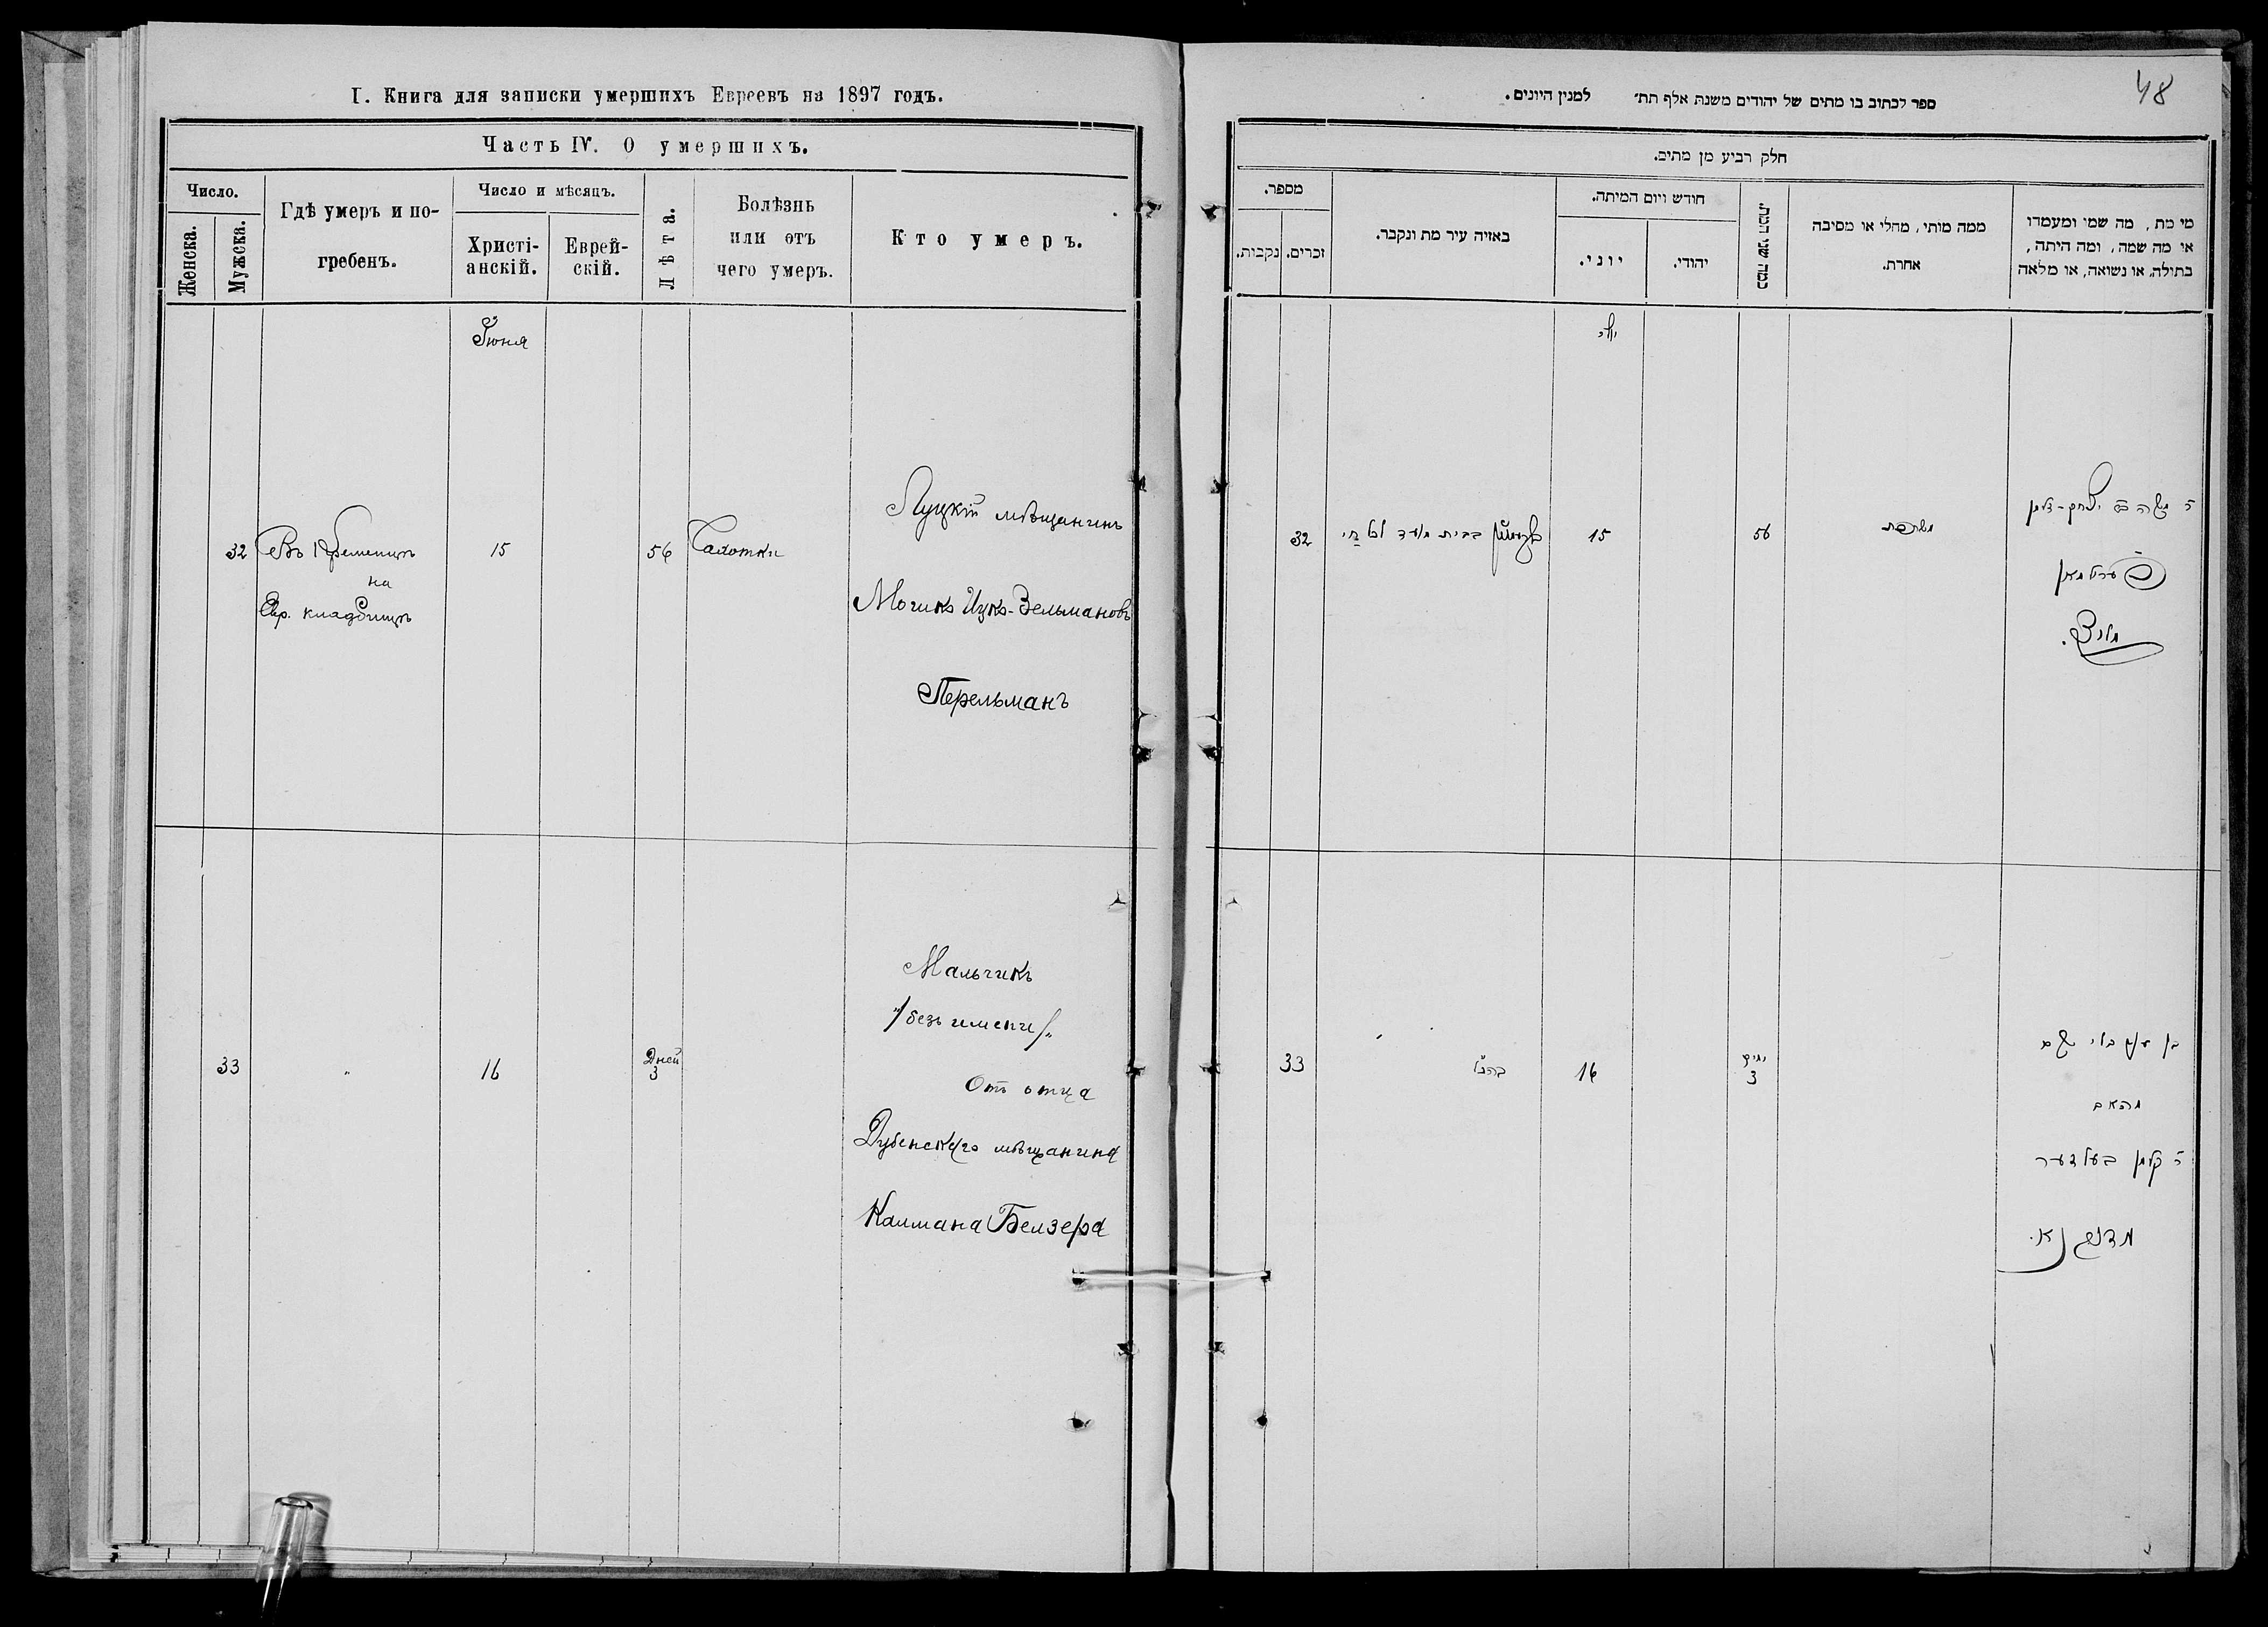 I. Книга для записки умершихъ Евреевъ на 1897 годъ.
Часть IV. О умершихъ.
Число.
Женска.
Мужска.
Гдѣ умеръ и по-
гребенъ.
Число и мѣсяцъ.
Христі-
анскій.
Еврей-
скій.
Лѣта.
Болѣзнь
или отъ
чего умеръ.
Кто умеръ.
Іюня
32
Въ Кременцѣ
на
Евр. кладбищѣ
15
56
Чахотки
Луцкій мѣщанинъ
Ицко-Зельмановъ
Перельманъ
33
"
16
Дней
3
Мальчикъ
"/безъ имени/"
Отъ отца
Дубенскаго мѣщанина
Калмана Белзера
48
ספר לכתוב בו מתים של יהודים משנת אלף תת׳ למנין היונים.
חלק רביע מן מתים.
מספר.
נקבות.
זכרים.
באיזה עיר מת ונקבר.
חודש ויום המיתה.
יוני.
יהודי.
ממה מותי, מחלי או מסיבה
אחרת.
מי מת, מה שמו ומעמדו
או מה שמה, ומה היתה,
בתולה, או נשואה, או מלאה
יוני
32
בבית מועד לכל חי
15
56
ר׳ משה יצחק-זלמן
פערלמאן
33
16
ימים
3
בן בלי שם
מהאב
ר׳ קלמן בעלזער